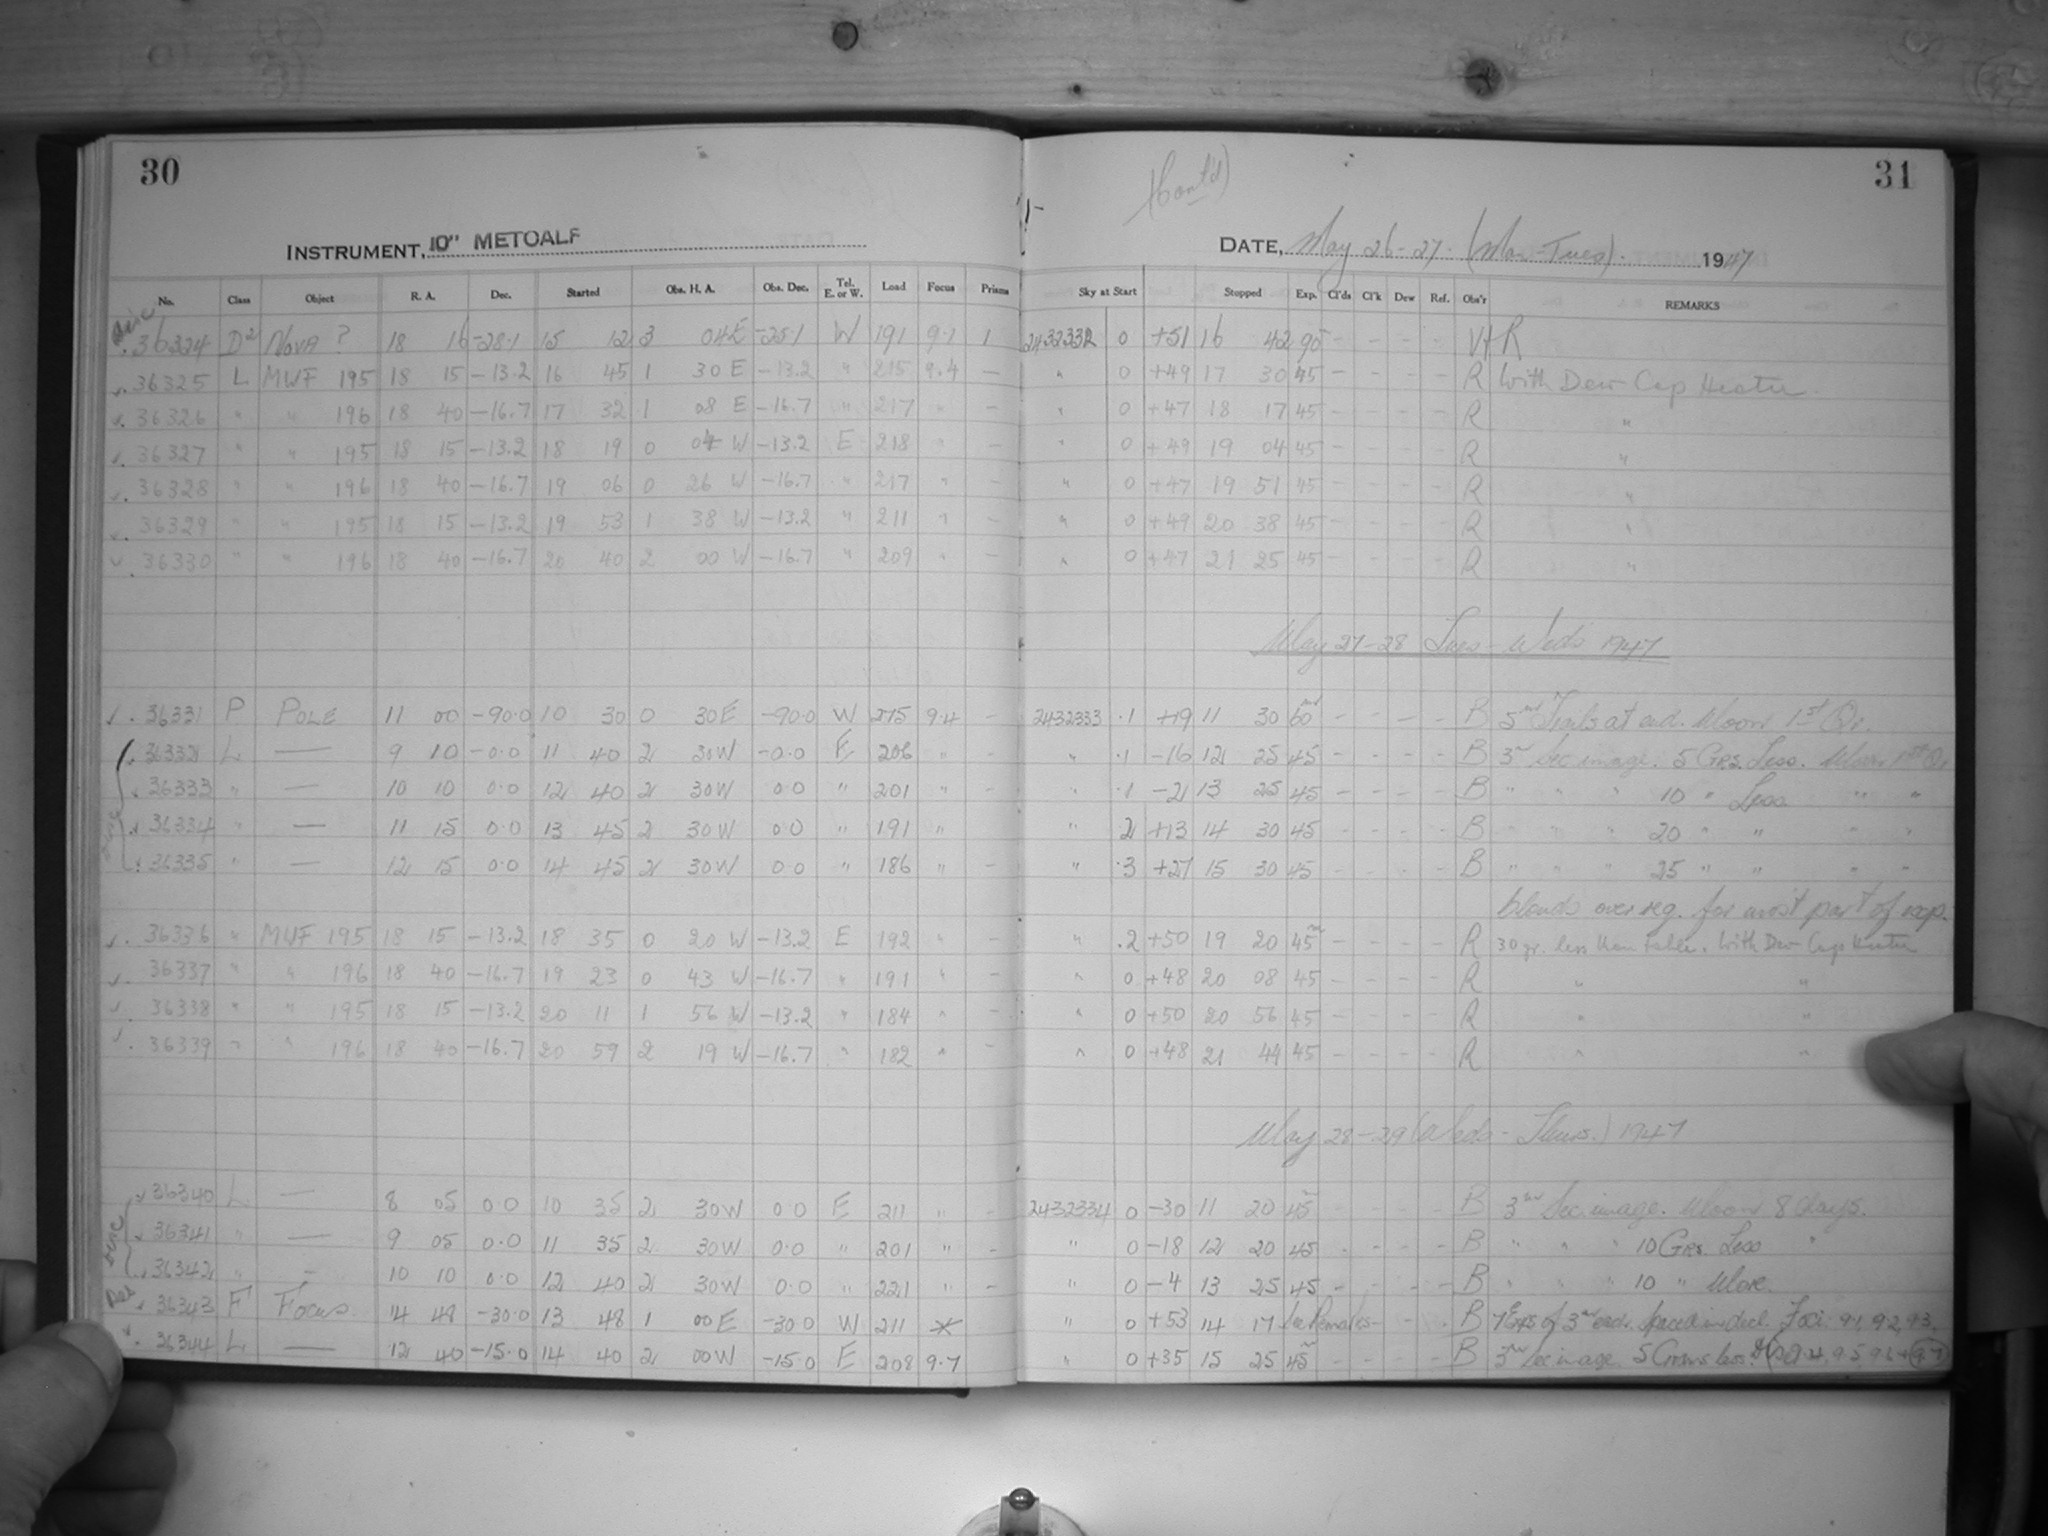 30
INSTRUMENT, 10" METCALF
No. Class Object R. A. Dec. Started Obs. H. A. Obs. Dec. Tel. E. or W. Load Focus Prisms
36324 D2 NOVA ? 18 16 -28.1 15 12 3 04 E -25.1 W 191 9.1 1
36325 L MWF 195 18 15 -13.2 16 45 1 30 E -13.2 " 215 9.4 -
36326 " " 196 18 40 -16.7 17 32 1 08 E -16.7 " 217 " -
36327 " " 195 18 15 -13.2 18 19 0 04 W -13.2 E 218 " -
36328 " " 196 18 40 -16.7 19 06 0 26 W -16.7 " 217 " -
36329 " " 195 18 15 -13.2 19 53 1 38 W -13.2 " 211 " -
36330 " " 196 18 40 -16.7 20 40 2 00 W -16.7 " 209 " -
36331 P POLE 11 00 -90.0 10 30 0 30 E -90.0 W 215 9.4 -
36332 L — 9 10 -0.0 11 40 2 30 W -0.0 E 206 " -
36333 " — 10 10 0.0 12 40 2 30 W 0.0 " 201 " -
36334 " — 11 15 0.0 13 45 2 30 W 0.0 " 191 "
36335 " — 12 15 0.0 14 45 2 30 W 0.0 " 186 " -
36336 " MWF 195 18 15 -13.2 18 35 0 20 W -13.2 E 192 " -
36337 " " 196 18 40 -16.7 19 23 0 43 W -16.7 " 191 " -
36338 " " 195 18 15 -13.2 20 11 1 56 W -13.2 " 184 " -
36339 " " 196 18 40 -16.7 20 59 2 19 W -16.7 " 182 " -
36340 L — 8 05 0.0 10 35 2 30 W 0.0 E 211 " -
36341 " — 9 05 0.0 11 35 2 30 W 0.0 " 201 " -
36342 " — 10 10 0.0 12 40 2 30 W 0.0 " 221 " -
36343 F Focus 14 48 -30.0 13 48 1 00 E -30.0 W 211 *
36344 L — 12 40 -15.0 14 40 2 00 W -15.0 E 208 9.7
31
(Cont'd)
DATE, May 26-27. (Mon-Tues). 1947
Sky at Start Stopped Exp. Cl'ds Cl'k Dew Ref. Obs'r REMARKS
2432332 0 +51 16 42 90 - - - - VH R
" 0 +49 17 30 45 - - - - R With Dew Cap Heater
" 0 +47 18 17 45 - - - - R "
" 0 +49 19 04 45 - - - - R "
" 0 +47 19 51 45 - - - - R "
" 0 +49 20 38 45 - - - - R "
" 0 +47 21 25 45 - - - - R "
May 27-28 Tues-Weds 1947
2432333 .1 +19 11 30 60 - - - - B 5 Trails at end. Moon 1st Qr.
" .1 -16 12 25 45 - - - - B 3 Sec image. 5 Grs. Less. Moon 1st Qr
" .1 -2 13 25 45 - - - - B " " " 10 " Less " "
" .2 +13 14 30 45 - - - - B " " " 20 " " " "
" .3 +27 15 30 45 - - - - B " " " 25 " " " "
Clouds over reg. for most part of exp.
" .2 +50 19 20 45 - - - - R 30 gr. less than table. With Dew Cap Heater
" 0 +48 20 08 45 - - - - R " "
" 0 +50 20 56 45 - - - - R " "
" 0 +48 21 44 45 - - - - R " "
May 28-29 (Weds-Thurs.) 1947
2432334 0 -30 11 20 45 - - - - B 3 Sec image. Moon 8 days.
" 0 -18 12 20 45 - - - - B " " " 10 Grs. Less "
" 0 -4 13 25 45 - - - - B " " " 10 " More.
" 0 +53 14 17 See Remarks - - - B 7 Exps of 3 each. Spaced in decl. Foci: 9.1, 9.2, 9.3,
" 0 +35 15 25 45 - - - - B 3 Sec image. 5 Grms less. 9.4, 9.5, 9.6 + 9.7